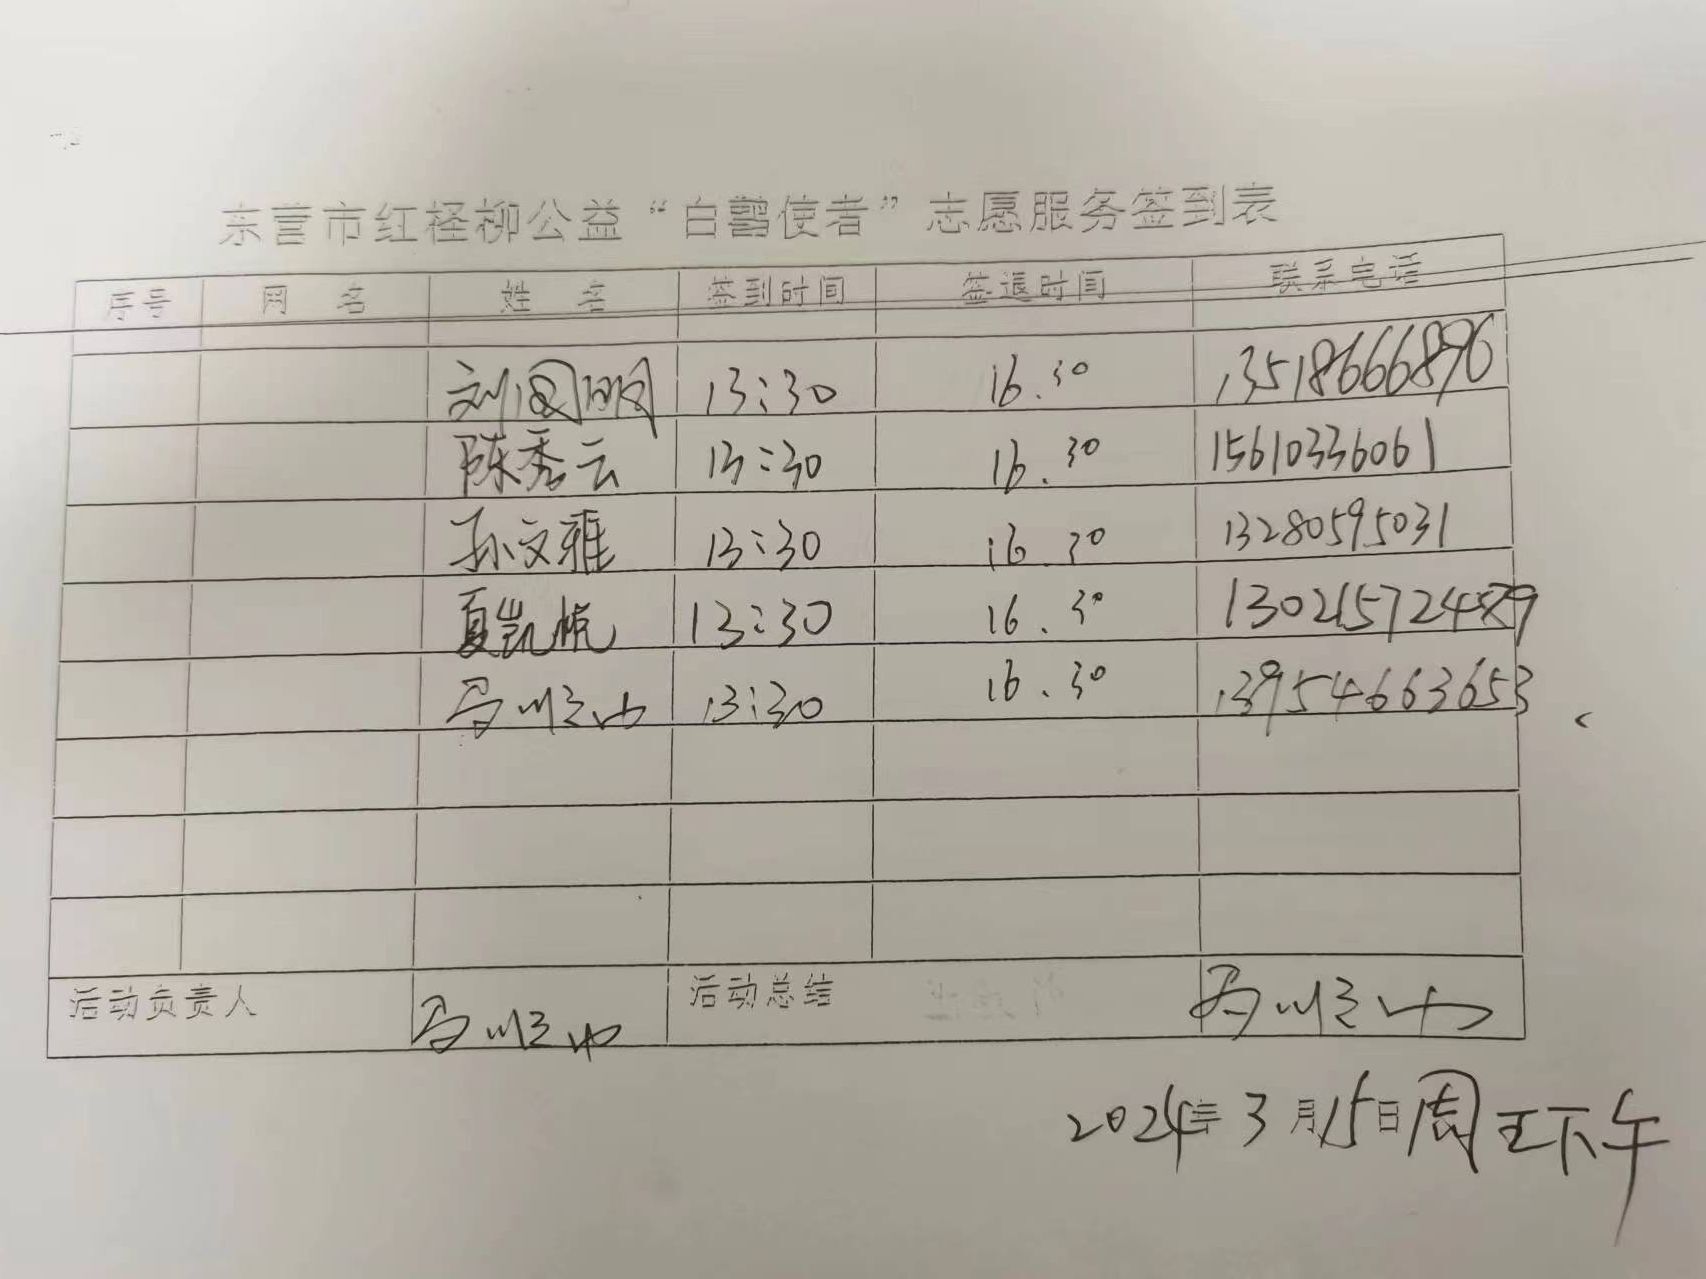 东营市红柽柳公益“白鹳使者”志愿服务签到表
序号 网 名 姓 名 签到时间 签退时间 联系电话
刘国明 13:30 16.30 13518666896
陈秀云 13:30 16.30 15610336061
孙文雅 13:30 16.30 13280595031
夏凯 13:30 16.30
13:30 16.30 13954663653
活动负责人 活动总结
2024年3月15日周五下午